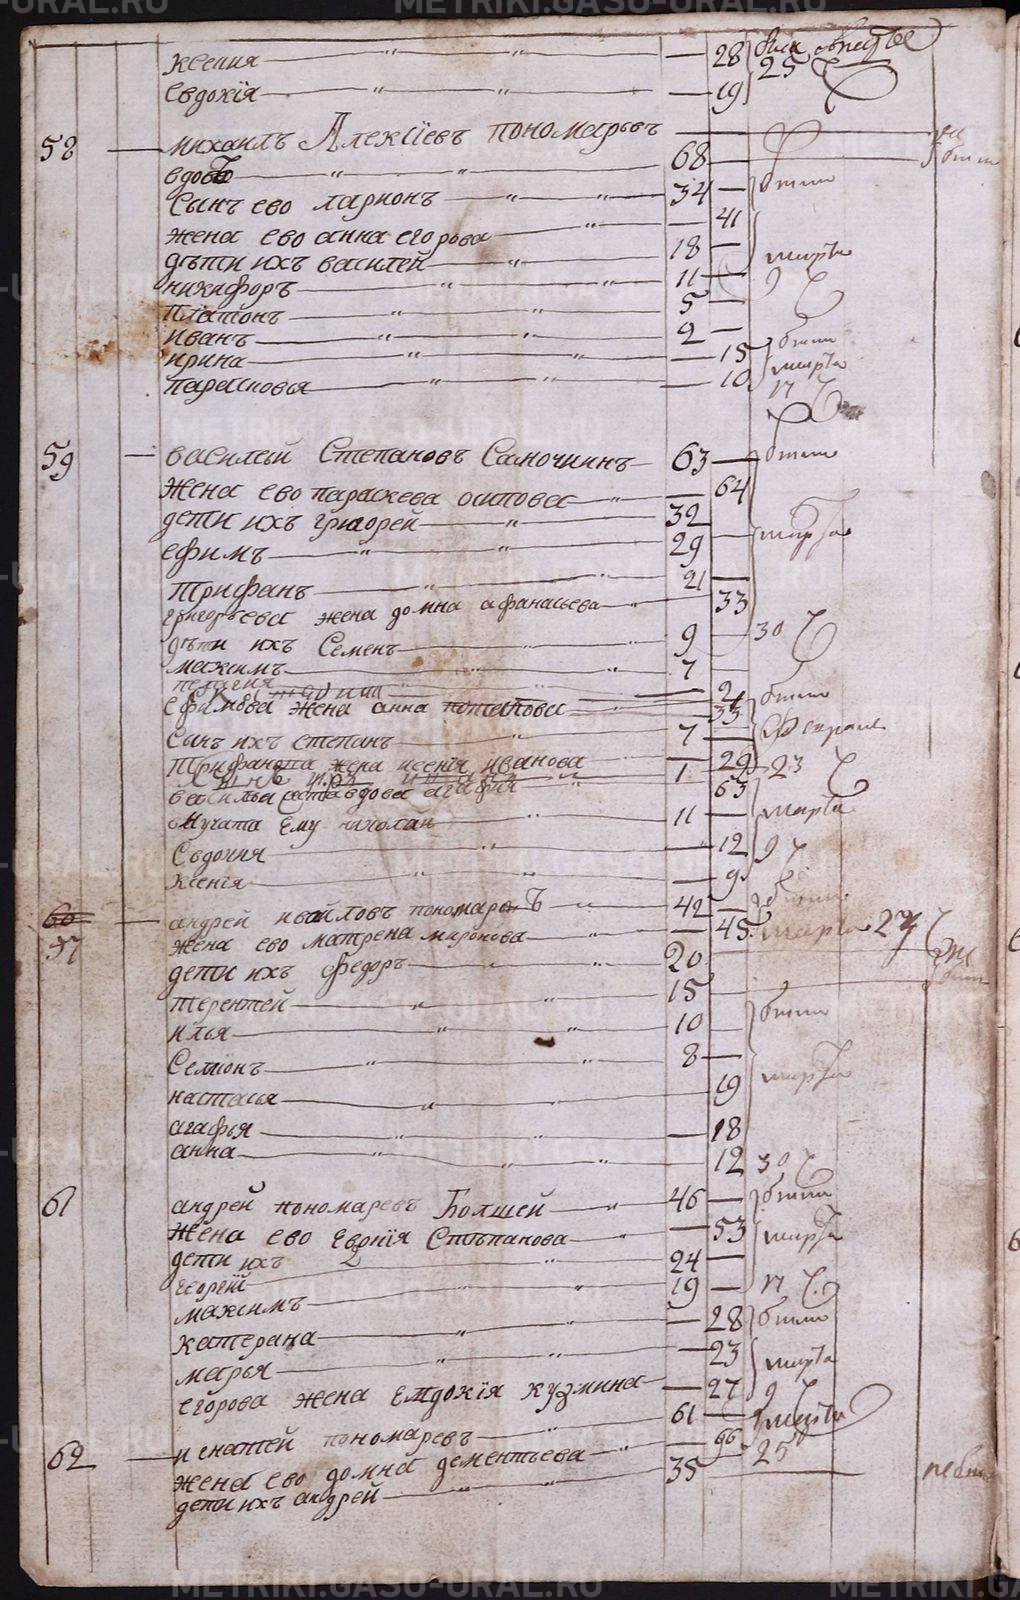 ксения — 28 были
евдокїя — 19 25
58 михаилъ Алексѣевъ пономаревъ
вдовъ — 68
Сынъ ево ларионъ — 34 — были
жена ево анна егорова — 41
дѣти ихъ василей — 18 — марта
никифоръ — 11 — 9
платонъ — 5 —
иванъ — 2 —
ирина — 15 были
парасковья — 10 марта 17
59 — василѣй Степановъ Самочинъ — 63 — были
жена ево параскева осипова — 64
дети ихъ григорей — 32 марта
ефимъ — 29 —
Трифанъ — 21 —
григорьева жена домна афанасьева — 33
дѣти ихъ Семенъ — 9 — 30
максимъ — 7 —
пелагия — 2 были
ефимова жена анна потапова — 33 февраля
Сынъ ихъ степанъ — 7 —
Трифанова жена ксенїя иванова — 29 23
1 —
вдова агафия — 63
ему николай — 11 — марта
Евдокия — 12 9
ксенїя — 9
60
57
андрей пономаревъ — 42 — были
жена ево матрена миронова — 45 марта 27
дети ихъ федоръ — 20
терентей — 15
илья — 10 — были
Семионъ — 8 — марта
настасья — 19
агафья — 18
анна — 12 30
61 андрей пономаревъ Болшей — 46 — были
жена ево Степанова — 53 марта
дети ихъ
георгїй — 24 —
максимъ — 19 — 17
катерана — 28 были
марья — 23 марта
егорова жена кузмина — 27 9
62 — игнатей пономаревъ — 61 — марта
жена ево домна дементьева — 66 25
дети ихъ андрей — 35
METRIKI.GASO-URAL.RU